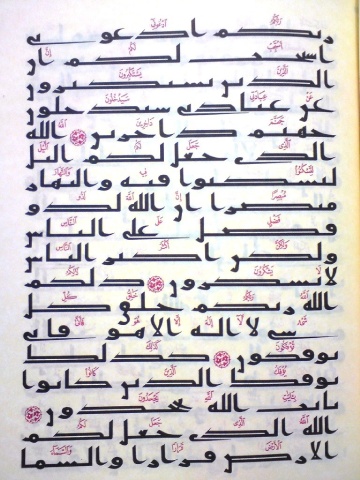 ربكم ادعوني
استجب لكم ان
الذين يستكبرون
عن عبادتي سيدخلون
جهنم داخرين ۝ الله
الذي جعل لكم اليل
لتسكنوا فيه والنهار
مبصرا ان الله لذو
فضل على الناس
ولكن اكثر الناس
لا يشكرون ۝ ذلكم
الله ربكم خلق كل
شي لا اله الا هو فاني
توفكون ۝ كذلك
يوفك الذين كانوا
بايت الله يجحدون ۝
الله الذي جعل لكم
الارض قرارا والسما